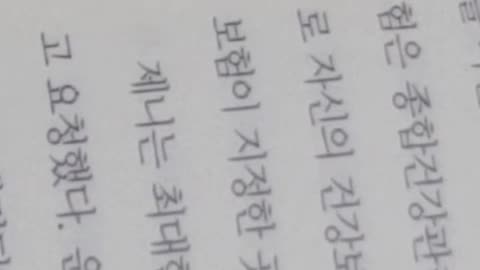 험은 종합건강관
로 자신의 건강보
보험이 지정한
제니는 최대한
고 요청했다.